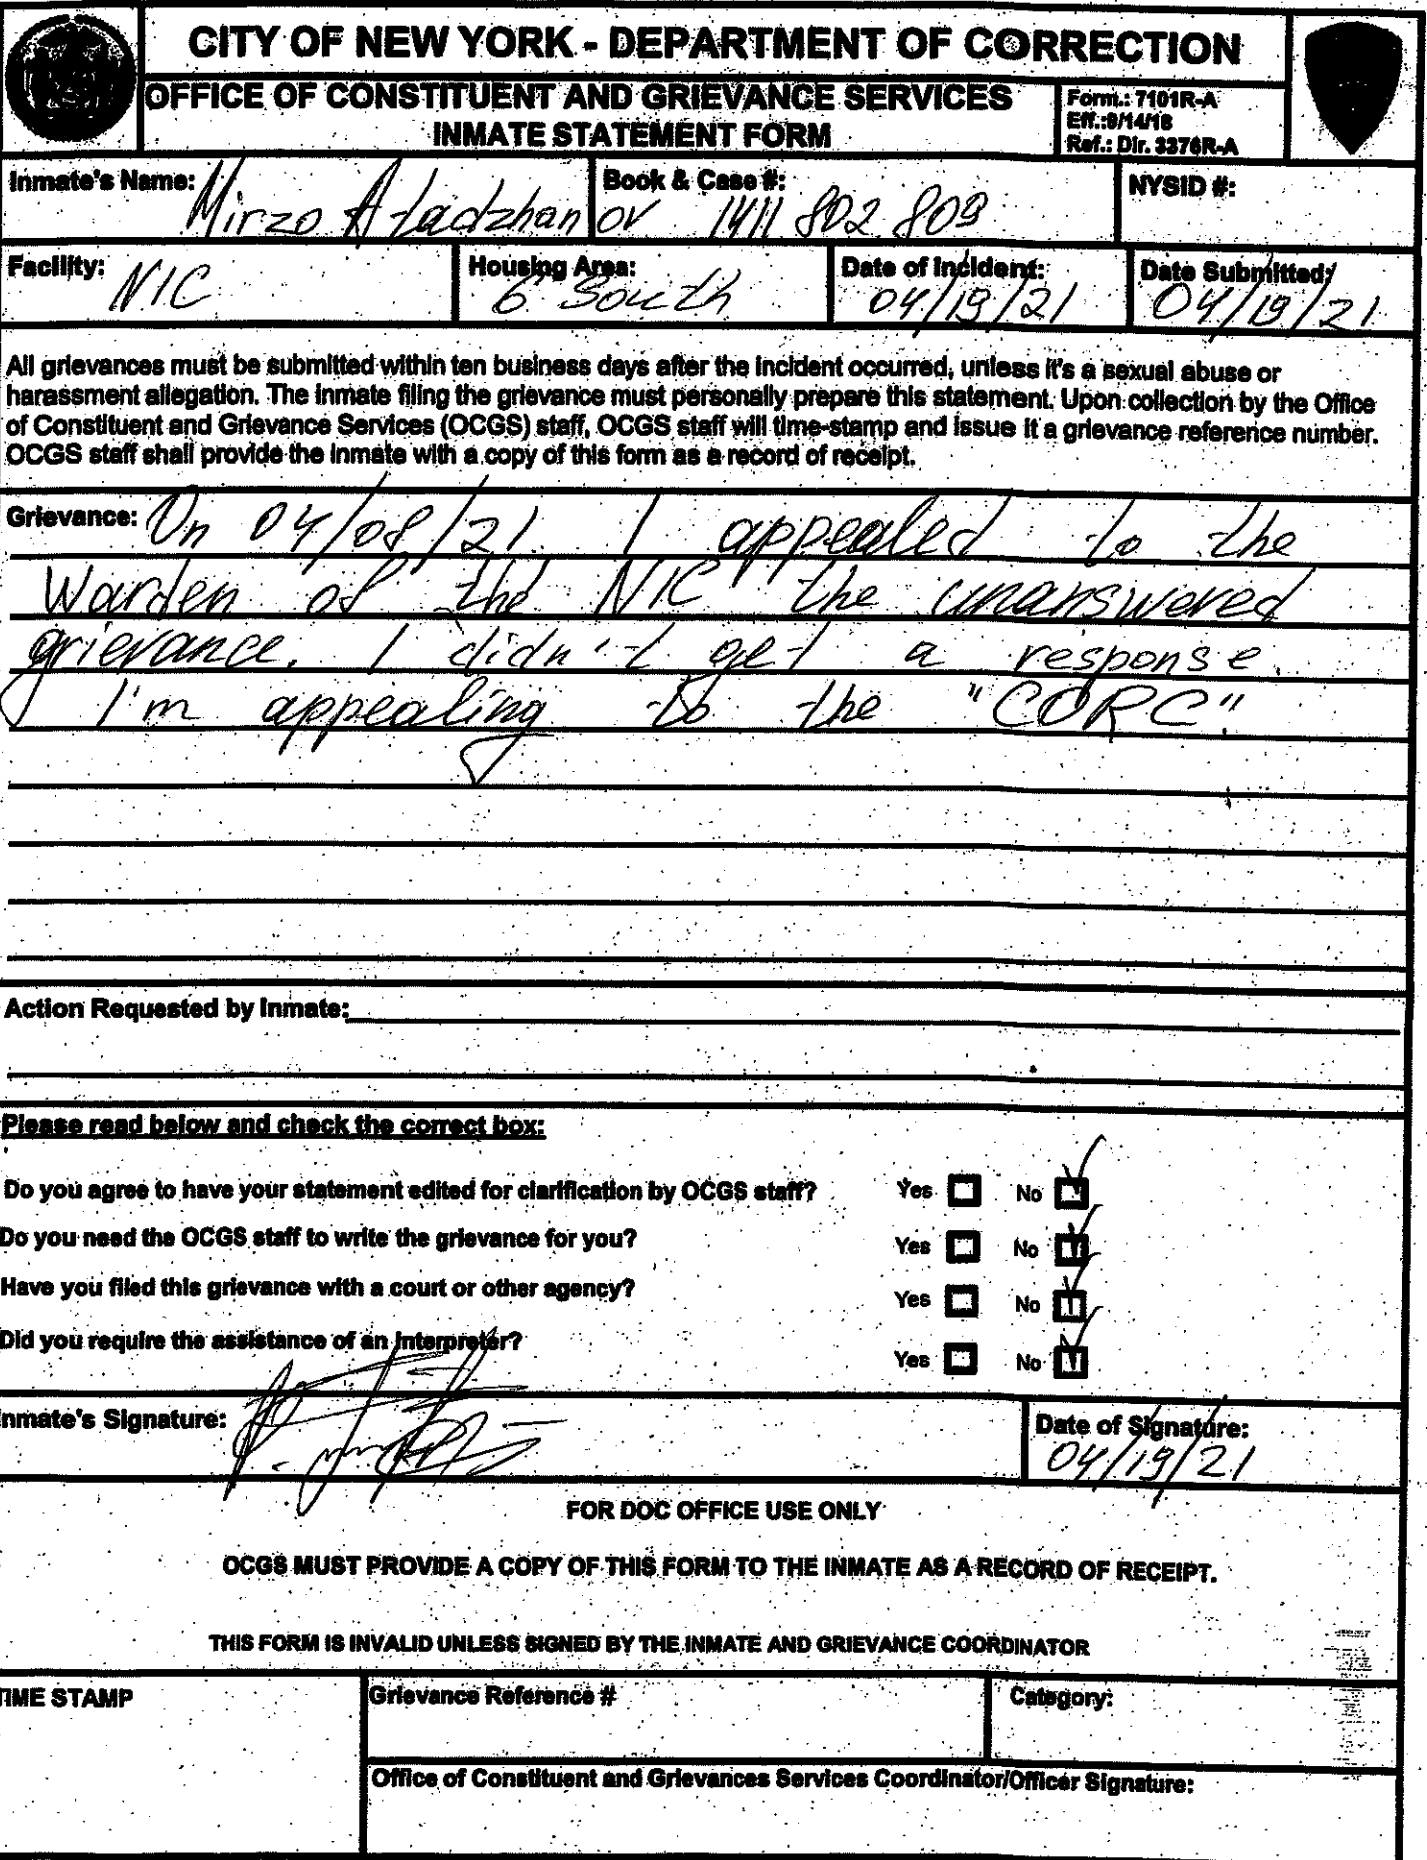 CITY OF NEW YORK - DEPARTMENT OF CORRECTION
OFFICE OF CONSTITUENT AND GRIEVANCE SERVICES
INMATE STATEMENT FORM
Form.: 7101R-A
Eff.:9/14/18
Ref.: Dir. 3376R-A
Inmate's Name: Mirzo Atadzhanov
Book & Case #: 1411 802 809
NYSID #:
Facility: NIC
Housing Area: 6 South
Date of Incident: 04/19/21
Date Submitted: 04/19/21
All grievances must be submitted within ten business days after the incident occurred, unless it's a sexual abuse or
harassment allegation. The inmate filing the grievance must personally prepare this statement. Upon collection by the Office
of Constituent and Grievance Services (OCGS) staff, OCGS staff will time-stamp and issue it a grievance reference number.
OCGS staff shall provide the inmate with a copy of this form as a record of receipt.
Grievance: On 04/08/21 I appealed to the
Warden of the NIC the unanswered
grievance. I didn't get a response.
I'm appealing to the "CORC".
Action Requested by Inmate:
Please read below and check the correct box:
Do you agree to have your statement edited for clarification by OCGS staff? Yes No
Do you need the OCGS staff to write the grievance for you? Yes No
Have you filed this grievance with a court or other agency? Yes No
Did you require the assistance of an interpreter? Yes No
Inmate's Signature:
Date of Signature: 04/19/21
FOR DOC OFFICE USE ONLY
OCGS MUST PROVIDE A COPY OF THIS FORM TO THE INMATE AS A RECORD OF RECEIPT.
THIS FORM IS INVALID UNLESS SIGNED BY THE INMATE AND GRIEVANCE COORDINATOR
TIME STAMP
Grievance Reference #
Category:
Office of Constituent and Grievances Services Coordinator/Officer Signature: